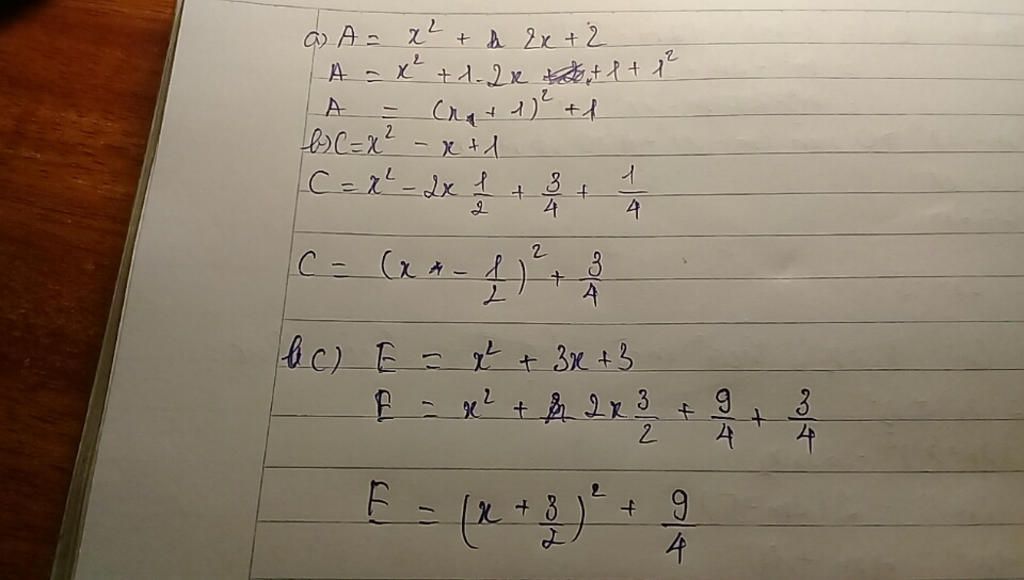 a) A = x² + 2x + 2
A = x² + 1.2x + 1 + 1²
A = (x + 1)² + 1
b) C = x² - x + 1
C = x² - 2x 1/2 + 3/4 + 1/4
C = (x - 1/2)² + 3/4
c) E = x² + 3x + 3
E = x² + 2x 3/2 + 9/4 + 3/4
E = (x + 3/2)² + 9/4